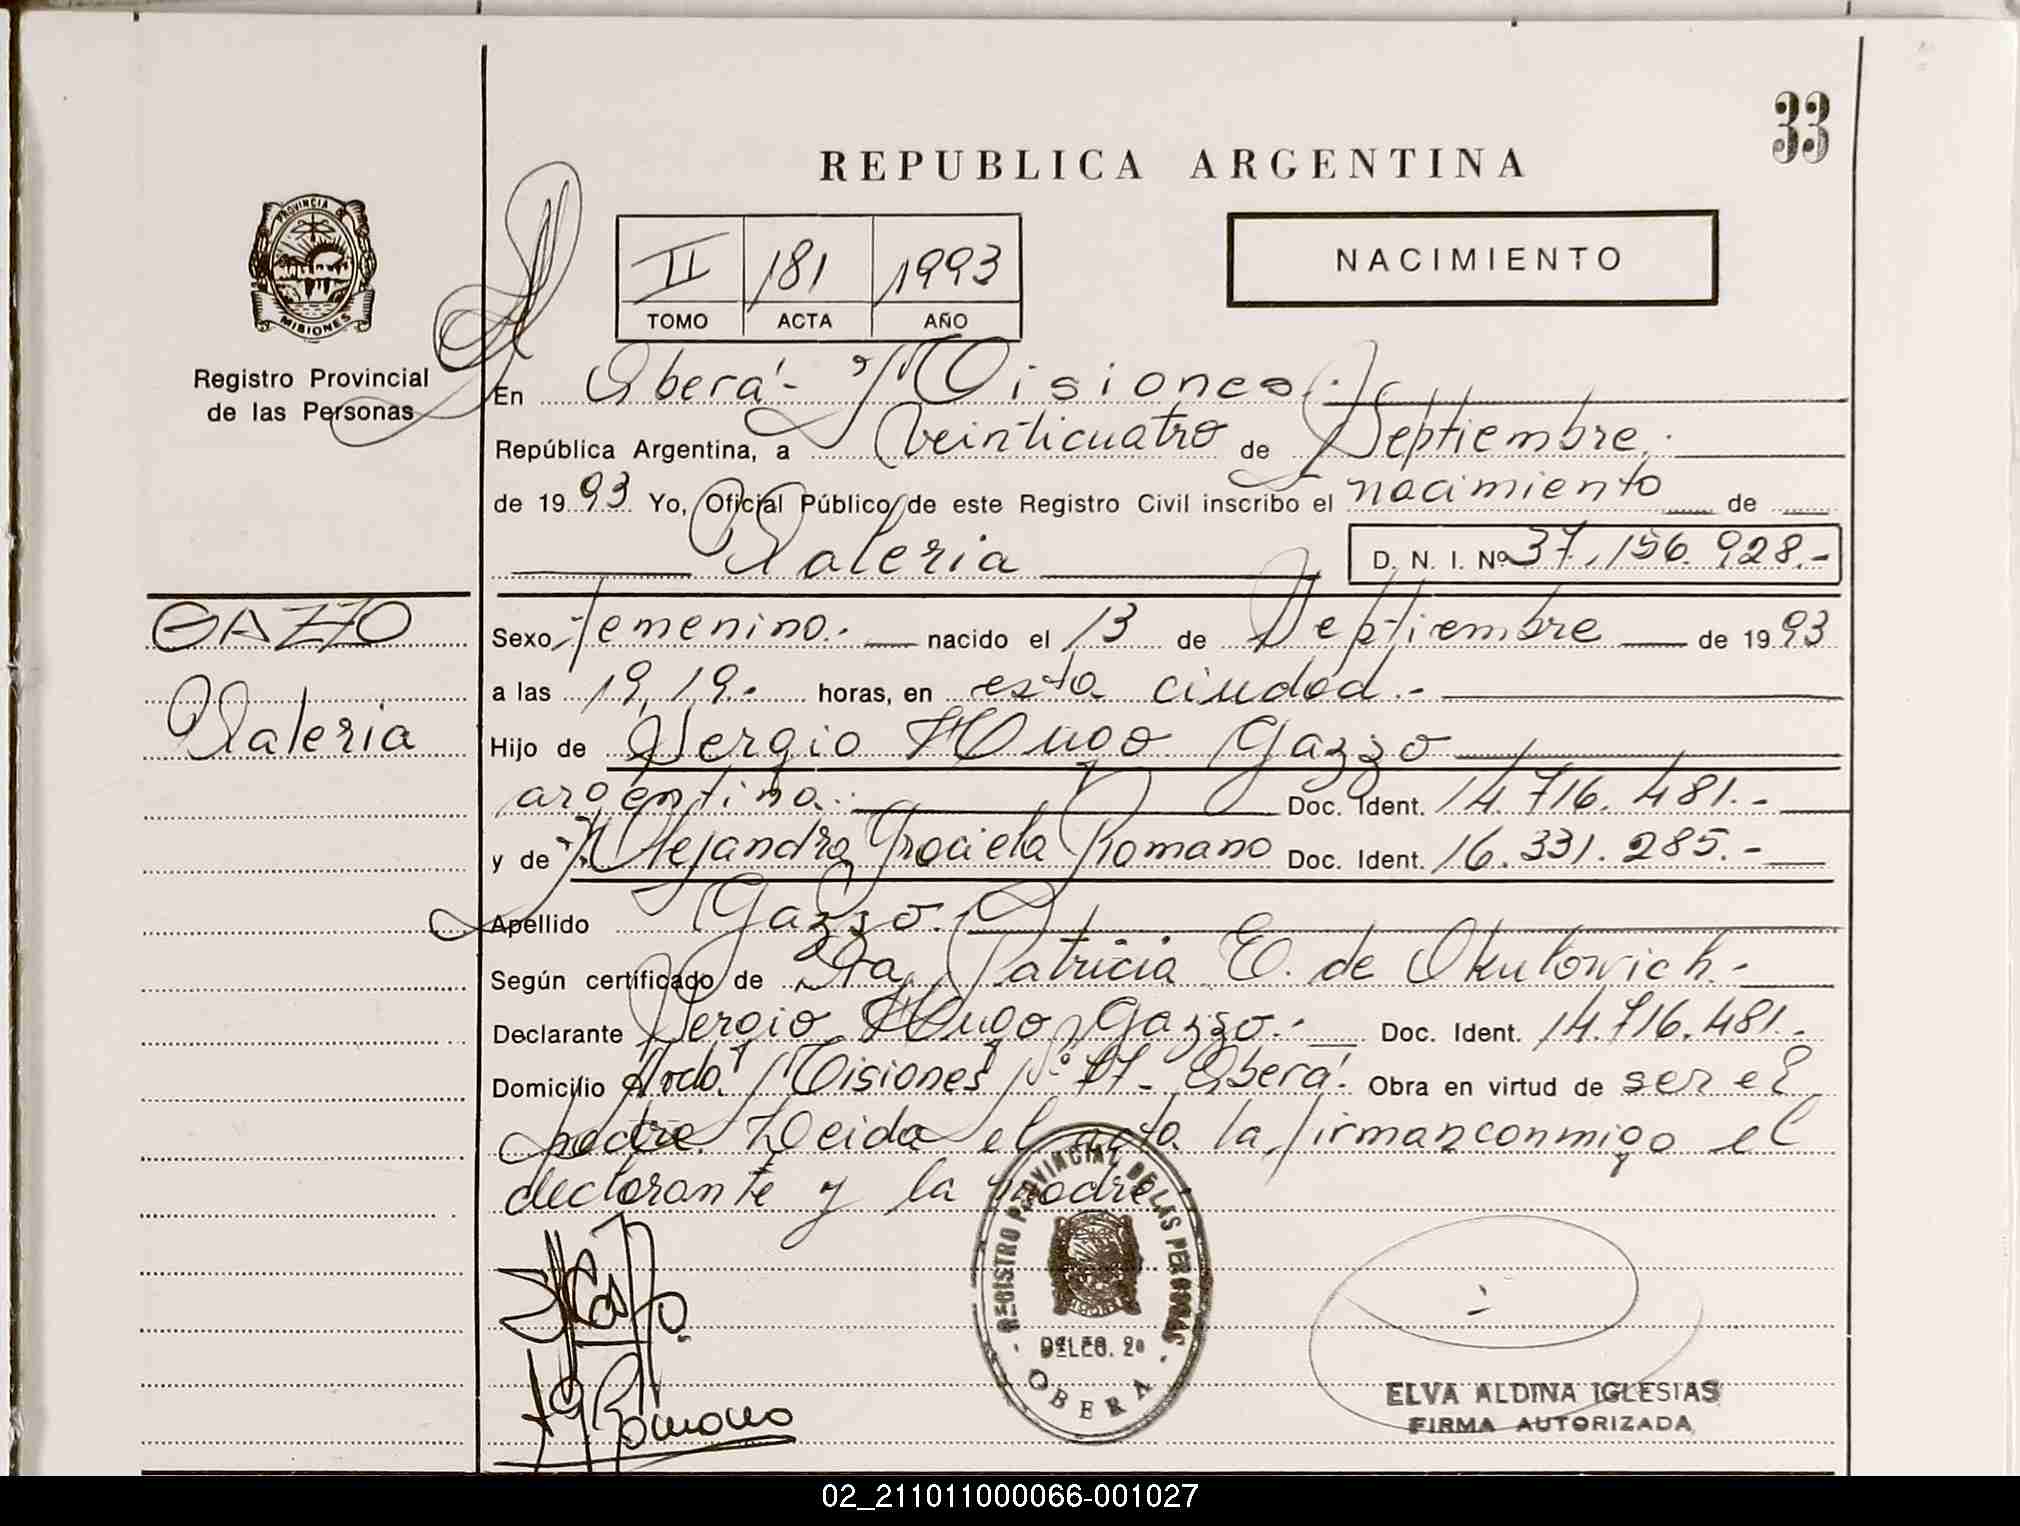 33
REPUBLICA ARGENTINA
PROVINCIA DE
MISIONES
Registro Provincial
de las Personas
II 181 1993
TOMO ACTA AÑO
NACIMIENTO
En Oberá - Misiones.
República Argentina, a Veinticuatro de Septiembre.
de 1993 Yo, Oficial Público de este Registro Civil inscribo el nacimiento de
Valeria D. N. I. Nº 37.156.928.-
GAZZO
Valeria
Sexo femenino.- nacido el 13 de Septiembre de 1993
a las 19,19.- horas, en esta ciudad.-
Hijo de Sergio Hugo Gazzo
argentino.- Doc. Ident. 14.716.481.-
y de Alejandra Graciela Romano Doc. Ident. 16.331.285.-
Apellido Gazzo.
Según certificado de Dra. Patricia E. de Okulovich.-
Declarante Sergio Hugo Gazzo.- Doc. Ident. 14.716.481.-
Domicilio Avda. Misiones Nº 77- Oberá. Obra en virtud de ser el
padre. Leida el acta la firman conmigo el
declarante y la madre.
REGISTRO PROVINCIAL DE LAS PERSONAS
OBERA
Romano
ELVA ALDINA IGLESIAS
FIRMA AUTORIZADA
02_211011000066-001027